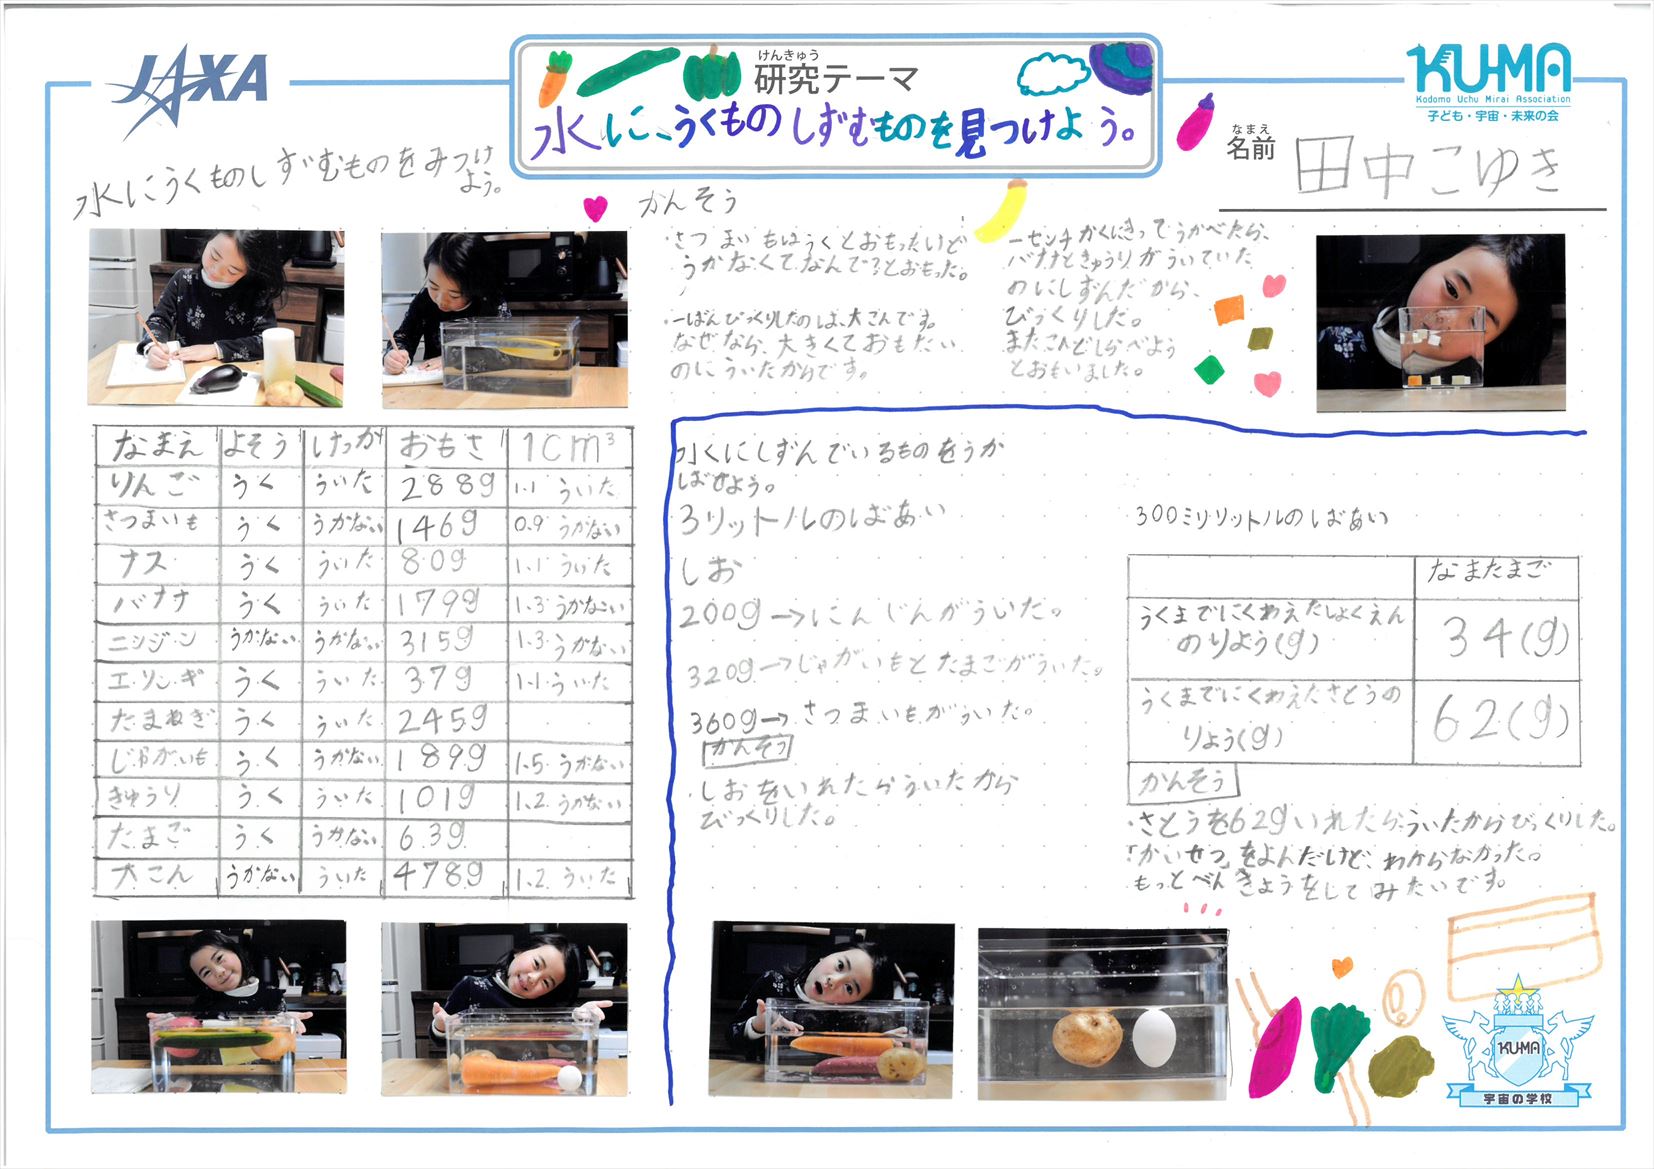 JAXA
けんきゅう
研究テーマ
水に、うくものしずむものを見つけよう。
KU-MA
Kodomo Uchu Mirai Association
子ども・宇宙・未来の会
なまえ
名前
田中こゆき
水にうくものしずむものをみつけ
よう。
かんそう
・さつまいもはうくとおもったけど
うかなくてなんで?とおもった。
・一ばんびっくりしたのは、大こんです。
なぜなら、大きくておもたい
のにういたからです。
一センチかくにきってうかべたら、
バナナときゅうりがういていた
のにしずんだから、
びっくりした。
またこんどしらべよう
とおもいました。
なまえ よそう けっか おもさ 1cm³
りんご うく ういた 288g 1.1 ういた
さつまいも うく うかない 146g 0.9 うかない
ナス うく ういた 80g 1.1 ういた
バナナ うく ういた 179g 1.3 うかない
ニンジン うかない うかない 315g 1.3 うかない
エリンギ うく ういた 37g 1.1 ういた
たまねぎ うく ういた 245g
じゃがいも うく うかない 189g 1.5 うかない
きゅうり うく ういた 101g 1.2 うかない
たまご うく うかない 63g
大こん うかない ういた 478g 1.2 ういた
水にしずんでいるものをうか
ばせよう。
3リットルのばあい
しお
200g→にんじんがういた。
320g→じゃがいもとたまごがういた。
360g→さつまいもがういた。
かんそう
・しおをいれたらういたから
びっくりした。
300ミリリットルのばあい
なまたまご
うくまでにくわえたしょくえん
のりよう(g)
34(g)
うくまでにくわえたさとうの
りょう(g)
62(g)
かんそう
・さとうを62gいれたらういたからびっくりした。
「かいせつ」をよんだけど、わからなかった。
もっとべんきょうをしてみたいです。
KU-MA
宇宙の学校